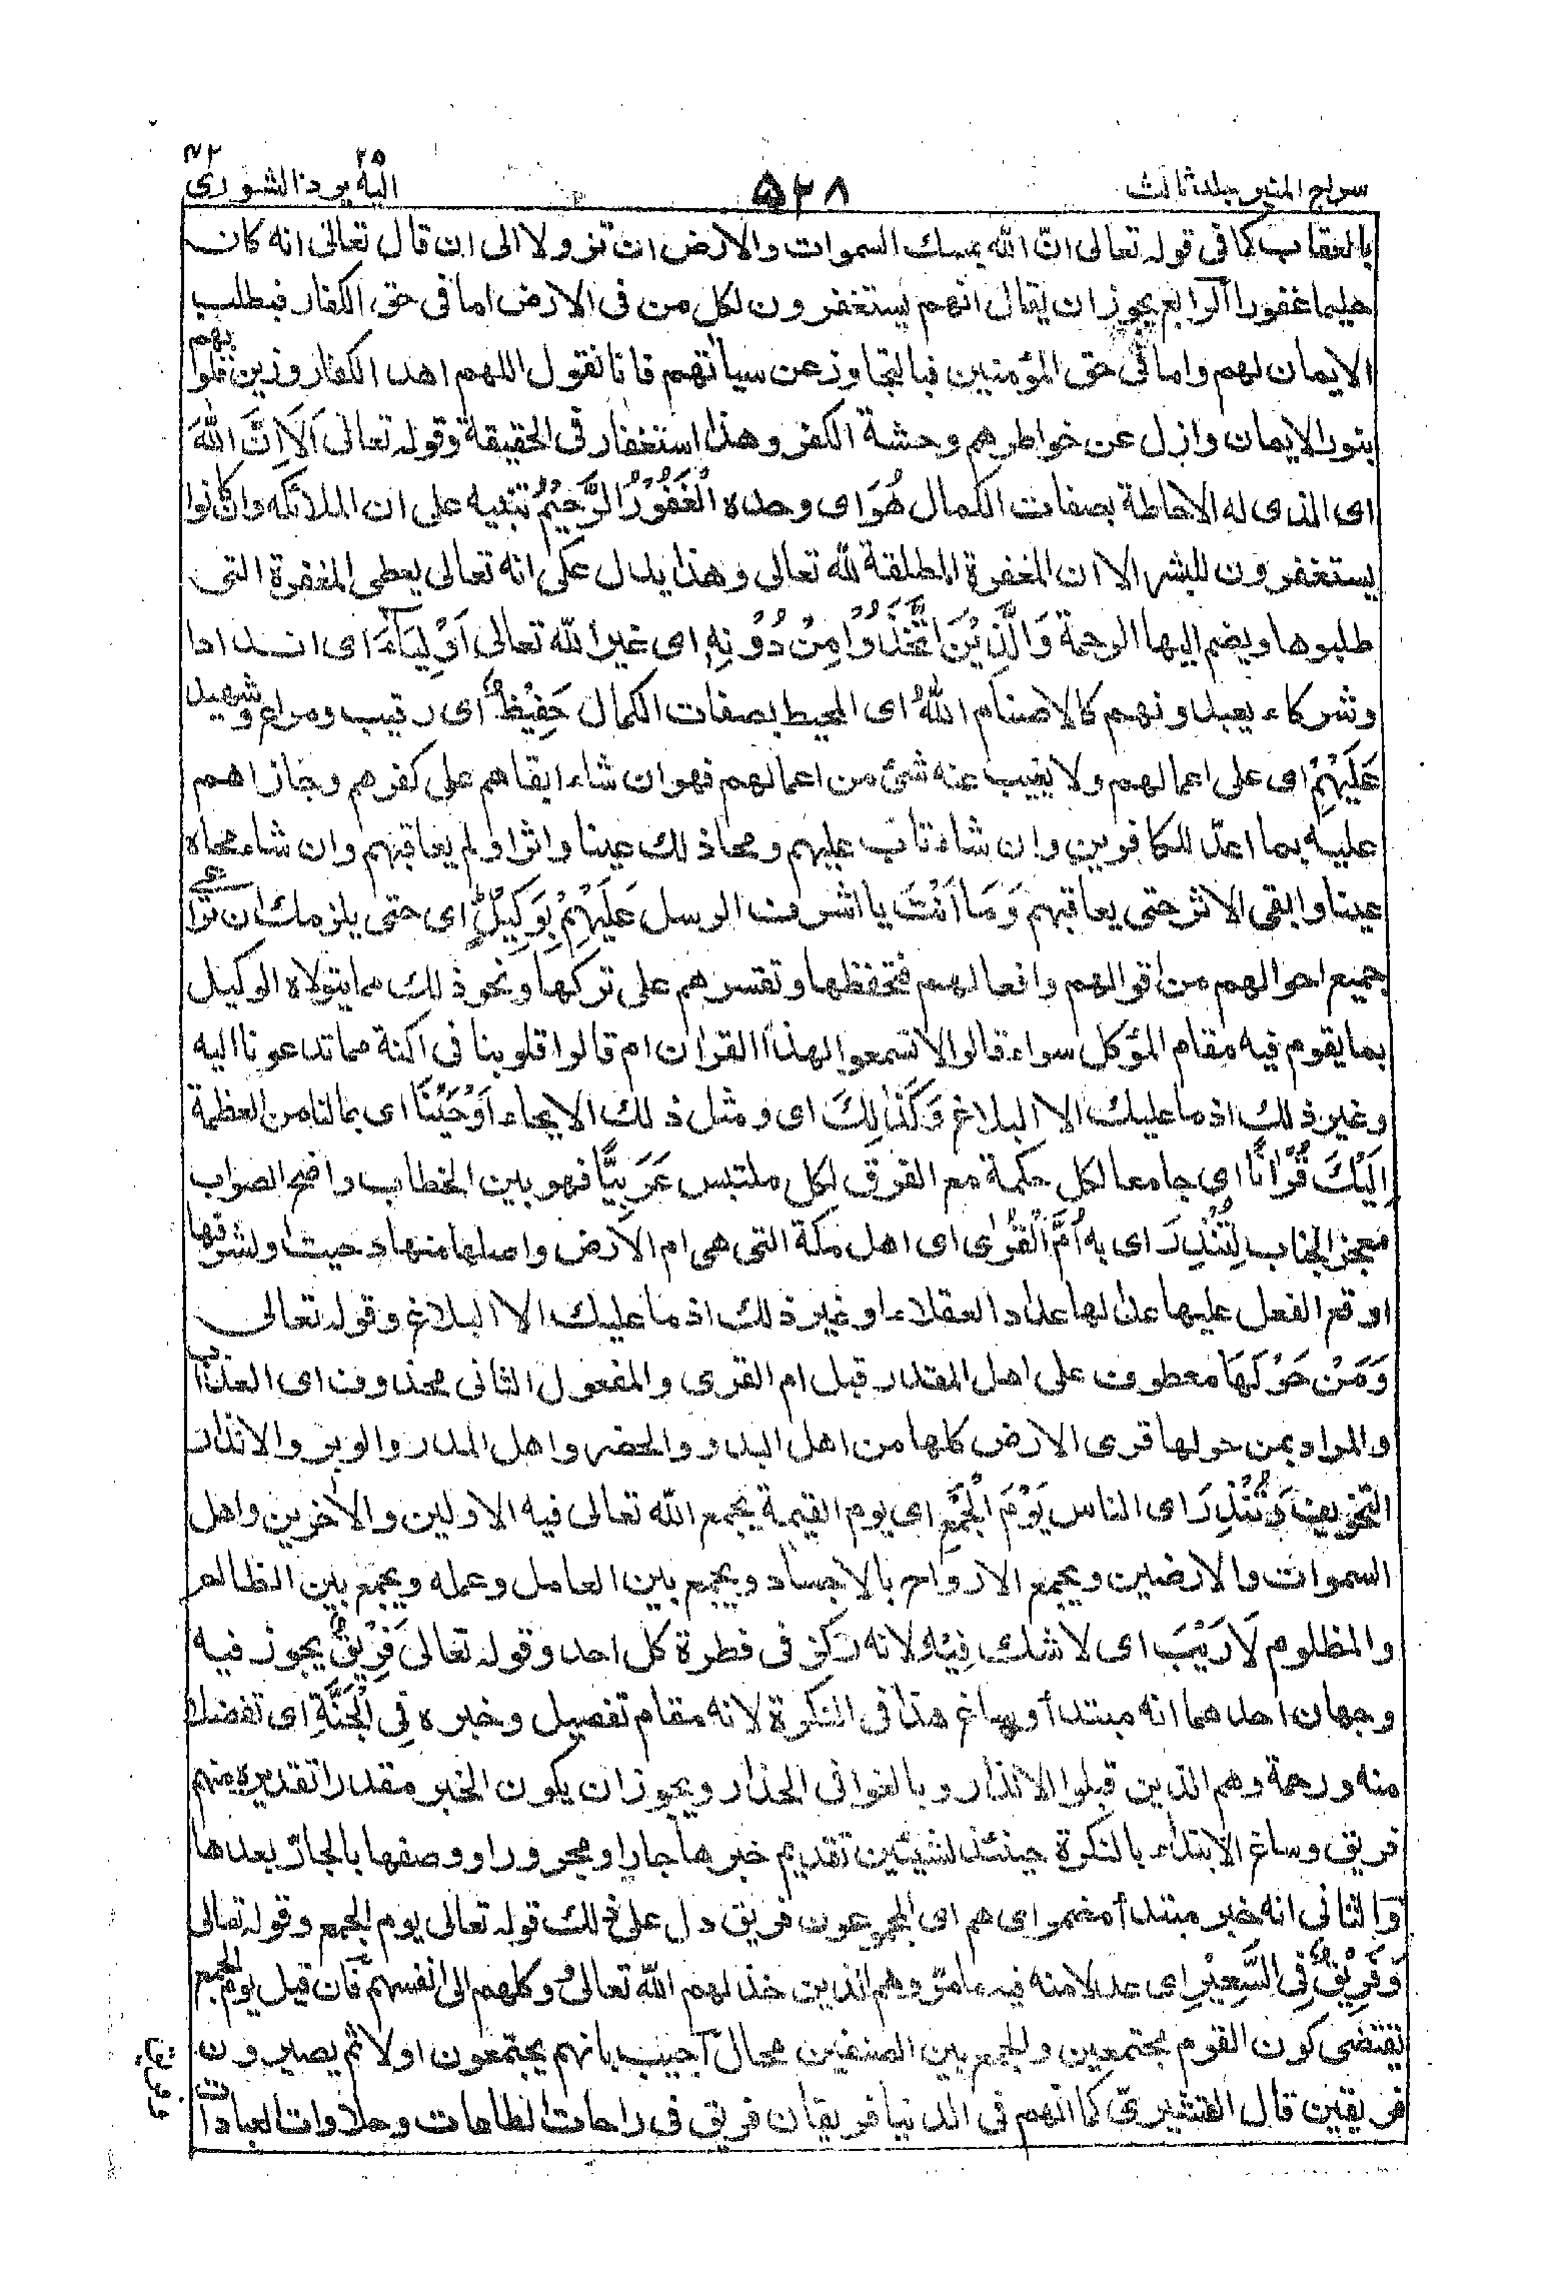 سراج المنير جلد ثالث
٥٢٨
اليه يرد ٢٥ الشورى ٤٢
بالعقاب كما فى قوله تعالى ان الله يمسك السموات والارض ان تزولا الى ان قال تعالى انه كان
حليما غفورا الرابع يجوز ان يقال انهم يستغفرون لكل من فى الارض اما فى حق الكفار فبطلب
الايمان لهم واما فى حق المؤمنين فبالتجاوز عن سيأتهم فانا نقول اللهم اهد الكفار وزين قلوبهم
بنور الايمان وازل عن خواطرهم وحشة الكفر وهذا استغفار فى الحقيقة وقوله تعالى اَلَا اِنَّ اللّٰهَ
اى الذى له الاحاطة بصفات الكمال هُوَ اى وحده الْغَفُوْرُ الرَّحِيْمُ تنبيه على ان الملائكه وان كانوا
يستغفرون للبشر الا ان المغفرة المطلقة لله تعالى وهذا يدل على انه تعالى يعطى المغفرة التى
طلبوها ويضم اليها الرحمة وَالَّذِيْنَ اتَّخَذُوْا مِنْ دُوْنِهٖ اى غير الله تعالى اَوْلِيَآءَ اى اندادا
وشركاء يعبدونهم كالاصنام اللّٰهُ اى المحيط بصفات الكمال حَفِيْظٌ اى رقيب ومراع وشهيد
عَلَيْهِمْ اى على اعمالهم ولا يغيب عنه شئ من اعمالهم فهو ان شاء ابقاهم على كفرهم وجازاهم
عليه بما اعدّ للكافرين وان شاء تاب عليهم ومحا ذلك عينا واثرا ولم يعاقبهم وان شاء محاه
عينا وابقى الاثر حتى يعاقبهم وَمَا اَنْتَ يا اشرف الرسل عَلَيْهِمْ بِوَكِيْلٍ اى حتى يلزمك ان تراعى
جميع احوالهم من اقوالهم وافعالهم فتحفظها وتقسرهم على تركها ونحو ذلك مما يتولاه الوكيل
بما يقوم فيه مقام المؤكل سواء قالوا لا تسمعوا لهذا القران ام قالوا قلوبنا فى اكنة مما تدعونا اليه
وغير ذلك اذ ما عليك الا البلاغ وَكَذٰلِكَ اى ومثل ذلك الايحاء اَوْحَيْنَا اى بمالنا من العظمة
اِلَيْكَ قُرْاٰنًا اى جامعا لكل حكمة مع الفرق لكل ملتبس عَرَبِيًّا فهو بين الخطاب واضح الصواب
معجز الجناب لِتُنْذِرَ اى به اُمَّ الْقُرٰى اى اهل مكة التى هى ام الارض واصلها منها دحيت ولشرفها
اوقع الفعل عليها عدا لها عداد العقلاء او غير ذلك اذ ما عليك الا البلاغ وقوله تعالى
وَمَنْ حَوْلَهَا معطوف على اهل المقدار قبل ام القرى والمفعول الثانى محذوف اى العذاب
والمراد بمن حولها قرى الارض كلها من اهل البدو والحضر واهل المدر والوبر والانذار
التخويف وَتُنْذِرَ اى الناس يَوْمَ الْجَمْعِ اى يوم القيمة يجمع الله تعالى فيه الاولين والاخرين واهل
السموات والارضين ويجمع الارواح بالاجساد ويجمع بين العامل وعمله ويجمع بين الظالم
والمظلوم لَا رَيْبَ اى لا شك فِيْهِ لانه ركز فى فطرة كل احد وقوله تعالى فَرِيْقٌ يجوز فيه
وجهان احدهما انه مبتدأ وساغ هذا فى النكرة لانه مقام تفصيل وخبره فِى الْجَنَّةِ اى تفضلا
منه ورحمة وهم الذين قبلوا الانذار وبالغوا فى الحذار ويجوز ان يكون الخبر مقدرا تقديره منهم
فريق وساغ الابتداء بالنكرة حينئذ لشيئين تقديم خبرها جارا ومجرورا ووصفها بالجار بعدها
والثانى انه خبر مبتدأ مضمر اى هم اى المجموعون فريق دل على ذلك قوله تعالى يوم الجمع وقوله تعالى
وَفَرِيْقٌ فِى السَّعِيْرِ اى عدلا منه فيه مامرّ وهم الذين خذلهم الله تعالى ووكلهم الى انفسهم فان قيل يوم الجمع
يقتضى كون القوم مجتمعين والجمع بين الصنفين محال اجيب بانهم يجتمعون اولا ثم يصيرون
فريقين قال القشيرى كما انهم فى الدنيا فريقان فريق فى راحات الطاعات وحلاوات العبادات